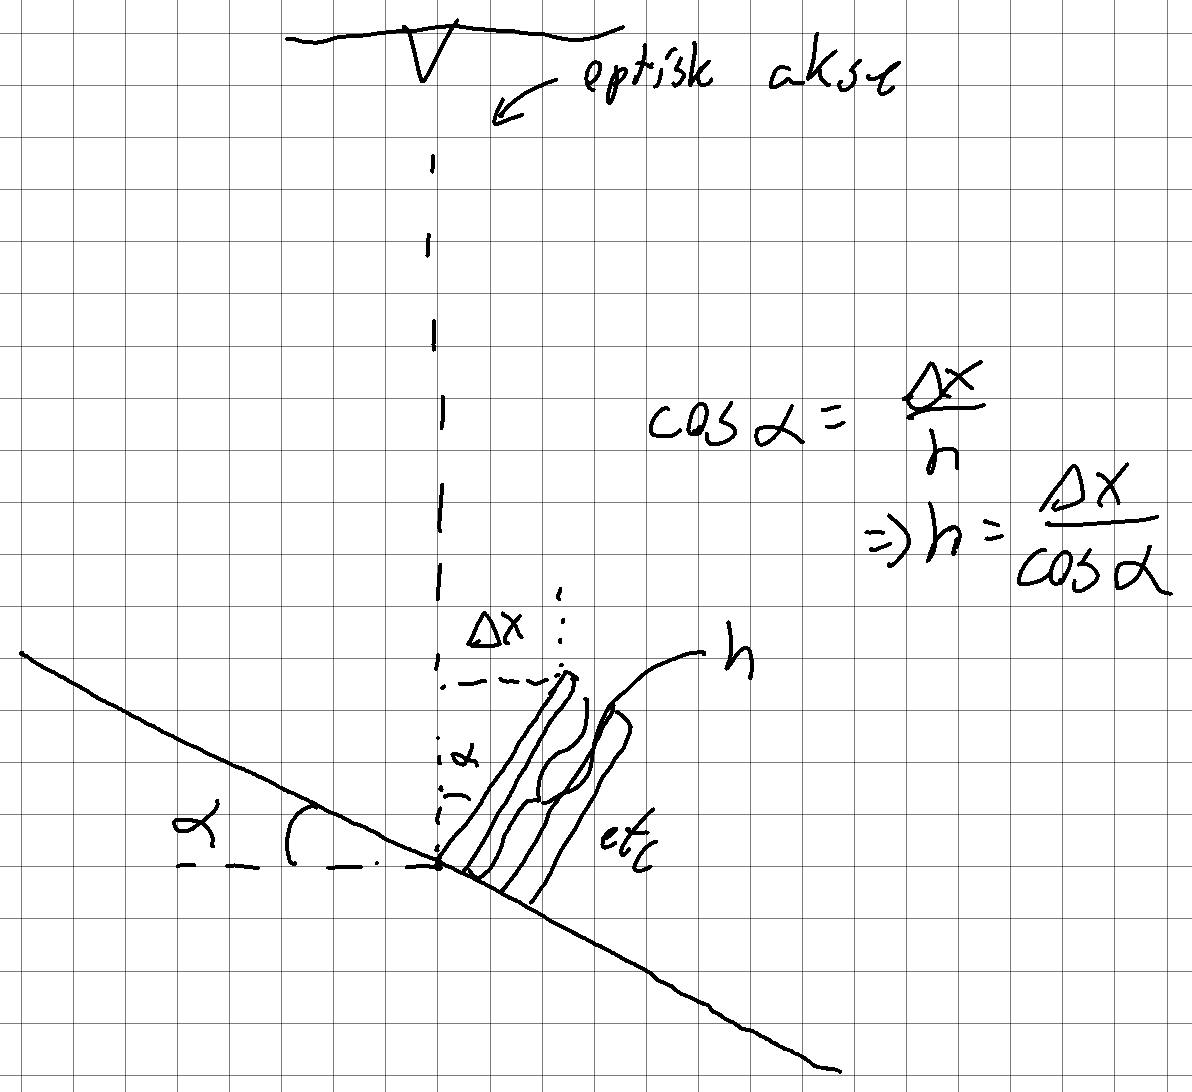 optisk akse
cos α = Δx / h
⇒ h = Δx / cos α
Δx
h
α
α
etc